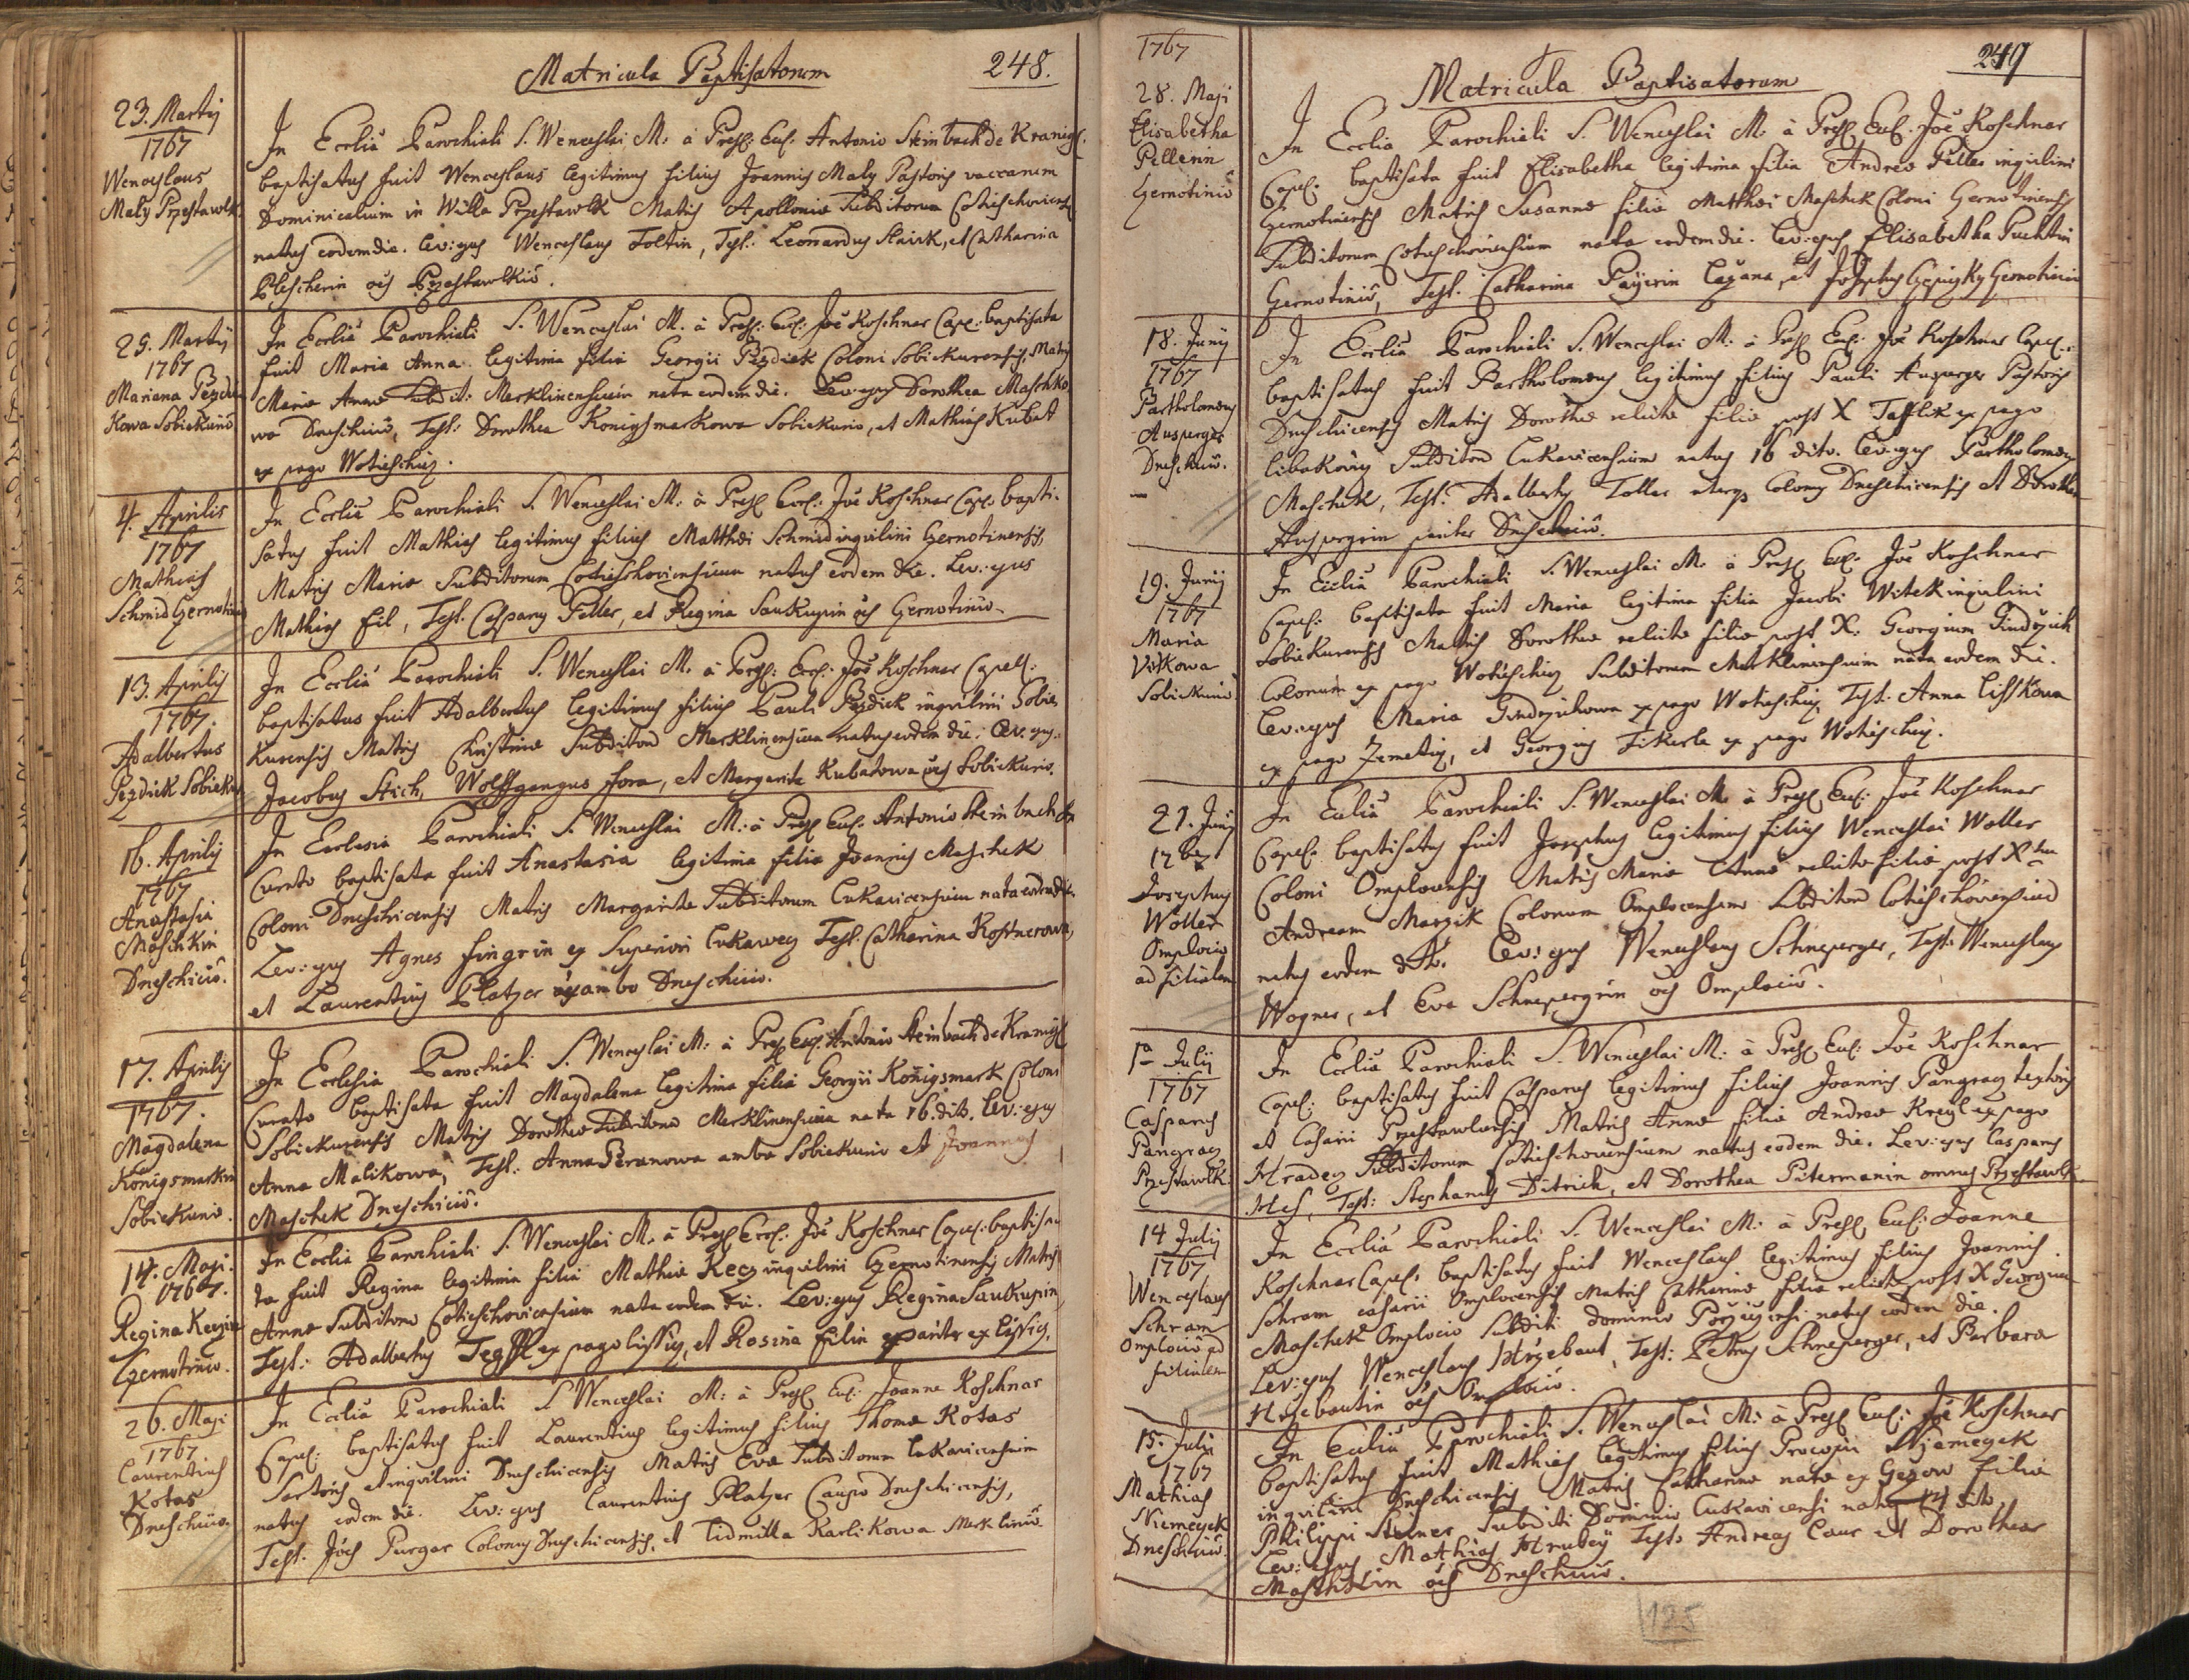 Matricula Baptisatorum
248.
23. Martij
1767
Wenceslaus
Maly Przestawlk.
In Ecclia Parochiali S. Wenceslai M. à Presb: Eccl. Antonio Steinbach de Kranigs.
baptisatus fuit Wenceslaus legitimus filius Joannis Maly Pastoris vaccarum
Dominicalium in Willa Przestawlk Matris Apolloniae Subditorum Cotieschoviens
natus eodem die. Lev: ejus Wenceslaus Foltin, Test: Leonardus Stairk, et Catharina
Blescherin oes Przestawlkio.
25. Martij
1767
Mariana Pezdi
Kowa Sobiekurio
In Ecclia Parochiali S. Wenceslai M. à Presb: Eccl: Joe Koschner Capl: baptisata
fuit Maria Anna legitima filia Georgii Pezdiek Coloni Sobiekurensis, Matris
Mariae Annae Subdit: Merklinensium nata eodem die. Lev: ejus Dorothea Maschko
wa Dneschicio, Test: Dorothea Konigsmarkowa Sobiekurio, et Mathias Kubat
ex pago Wotieschiz.
4. Aprilis
1767
Mathias
Schmid Gernotinio
In Ecclia Parochiali S. Wenceslai M: à Presb Eccl: Joe Koschner Capl: bapti-
satus fuit Mathias legitimus filius Matthaei Schmid inquilini Gernotinensis,
Matris Mariae Subditorum Cotieschoviensium natus eodem die. Lev: ejus
Mathias Fil, Test. Casparus Peller, et Regina Saukupin oes Gernotinio.
13. Aprilis
1767.
Adalbertus
Pezdick Sobieku
In Ecclia Parochiali S. Wenceslai M. à Presb: Eccl: Joe Koschner Capell:
baptisatus fuit Adalbertus legitimus filius Pauli Pezdick inquilini Sobie
kurensis Matris Christinae Subditorum Merklinensium natus eodem die. Lev: ejus
Jacobus Stich, Wolffgangus Hora, et Margarita Kubatowa oes Sobiekurio.
16. Aprilis
1767
Anastasia
Maschkin
Dneschicio.
In Ecclesia Parochiali S. Wenceslai M: à Presb Eccl: Antonio Steinbach de
Curato baptisata fuit Anastasia legitima filia Joannis Maschek
Coloni Dneschicensis Matris Margarita Subditorum Lukavicensium nata eodem die.
Lev: ejus Agnes Fingrin ex Superiori Lukawez Test: Catharina Kostnerowa,
et Laurentius Platzer ambo Dneschicio.
17. Aprilis
1767.
Magdalena
Königsmarkin
Sobiekurio.
In Ecclesia Parochiali S. Wenceslai M: à Presb Eccl: Antonio Steinbach de Kranigs
Curato baptisata fuit Magdalena legitima filia Georgii Konigsmark Coloni
Sobiekurensis Matris Dorotheae Subditorum Merklinensium nata 16. dito. Lev: ejus
Anna Malikowa, Test: Anna Beranowa ambo Sobiekurio et Joannes
Maschek Dneschicio.
14. Maji
1767.
Regina Keczin
Gernotinio.
In Ecclia Parochiali S. Wenceslai M. à Presb Eccl: Joe Koschner Capl: baptisa
ta fuit Regina legitima filia Mathiae Kecz inquilini Gernotinensis Matris
Annae Subditorum Cotieschoviensium nata eodem die. Lev: ejus Regina Saukupin,
Test: Adalbertus Tegssl ex pago Lissiz, et Rosina Filin pariter ex Lissiz.
26. Maji
1767
Laurentius
Kotas
Dneschicio.
In Ecclia Parochiali S. Wenceslai M: à Presb Eccl: Joanne Koschner
Capel: baptisatus fuit Laurentius legitimus filius Thomae Kotas
Sartoris et inquilini Dneschicensis Matris Evae Subditorum Lukavicensium
natus eodem die. Lev: ejus Laurentius Platzer Caupo Dneschicensis,
Test: Joes Purger Colonus Dneschicensis, et Lidmilla Karlikowa Merklinio.
1767
249
Matricula Baptisatorum
28. Maji
Elisabetha
Pellerin
Gernotinio
In Ecclia Parochiali S. Wenceslai M. à Presb Eccl. Joe Koschner
Capel: baptisata fuit Elisabetha legitima filia Andreae Peller inquilini
Gernotinensis Matris Susannae filiae Matthaei Maschek Coloni Gernotinensis
Subditorum Cotieschoviensium nata eodem die. Lev: ejus Elisabetha Puchtin
Gernotinio, Test. Catharina Payirin, et Josephus Gernotinio
18. Junij
1767
Bartholomeus
Ausperger
Dneschicio.
In Ecclia Parochiali S. Wenceslai M. à Presb Eccl: Joe Koschner Capel:
baptisatus fuit Bartholomeus legitimus filius Pauli Ausperger Pastoris
Dneschicensis Matris Dorotheae relictae filiae post X Tafflek ex pago
Libakowiz Subditorum Lukavicensium natus 16 dito. Lev: ejus Bartholomeus
Maschek, Test: Adalbertus Toller uterq Colonus Dneschicensis et Dorothea
Auspergrin pariter Dneschicio.
19. Junij
1767
Maria
Vitkowa
Sobiekurio
In Ecclia Parochiali S. Wenceslai M. à Presb Eccl: Joe Koschner
Capel: baptisata fuit Maria legitima filia Jacobi Witek inquilini
Sobiekurensis Matris Dorotheae relictae filiae post X: Georgium Jindrzich
Colonum ex pago Wotieschiz Subditorum Merklinensium nata eodem die.
Lev: ejus Maria Gindrzichowa ex pago Wotieschiz, Test: Anna Lisskowa
ex pago Zemetiz, et Georgius Fikerle ex pago Wotieschiz.
21. Junij
1767
Josephus
Woller
Omplocio
ad filialem
In Ecclia Parochiali S. Wenceslai M. à Presb Eccl: Joe Koschner
Capel: baptisatus fuit Josephus legitimus filius Wenceslai Woller
Coloni Omplocensis Matris Mariae Annae relictae filiae post X tum
Andream Marzik Colonum Omplocensem Subditorum Cotieschoviensium
natus eodem die. Lev: ejus Wenceslaus Schneperger, Test: Wenceslaus
Wagner, et Eva Schnepergrin oes Omplocio.
1a Julij
1767
Casparus
Pangraz
Przestawlk.
In Ecclia Parochiali S. Wenceslai M: à Presb Eccl: Joe Koschner
Capel: baptisatus fuit Casparus legitimus filius Joannis Pangraz textoris
et Casarii Przestawlensis Matris Annae filiae Andreae Kreysl ex pago
Hradez Subditorum Cotieschoviensium natus eodem die. Lev: ejus Casparus
Hes, Test: Stephanus Ditrich, et Dorothea Pitermanin omnes Przestawlk.
14 Julij
1767
Wenceslaus
Schram
Omplocio ad
filialem
In Ecclia Parochiali S. Wenceslai M: à Presb Eccl: Joanne
Koschner Capel: baptisatus fuit Wenceslaus legitimus filius Joannis
Schram casarii Omplocensis Matris Catharinae filiae relictae post X Georgium
Maschek Omplocio Subditi dominio Porzicensi natus eodem die.
Lev: ejus Wenceslaus Hrzebaut, Test: Petrus Schneperger, et Barbara
Hrzebautin oes Omplocio.
15. Julij
1767
Mathias
Niemeyek
Dneschicio
In Ecclia Parochiali S. Wenceslai M: à Presb Eccl: Joe Koschner
baptisatus fuit Mathias legitimus filius Procopii Njemeyek
inquilini Dneschicensis Matris Catharinae natae ex Gezow filiae
Philippi Steiner Subditi Dominio Lukavicensi natus 14 dito.
Lev: ejus Mathias Hrubey Test: Andreas Caur et Dorothea
Maschkin oes Dneschicio.
125